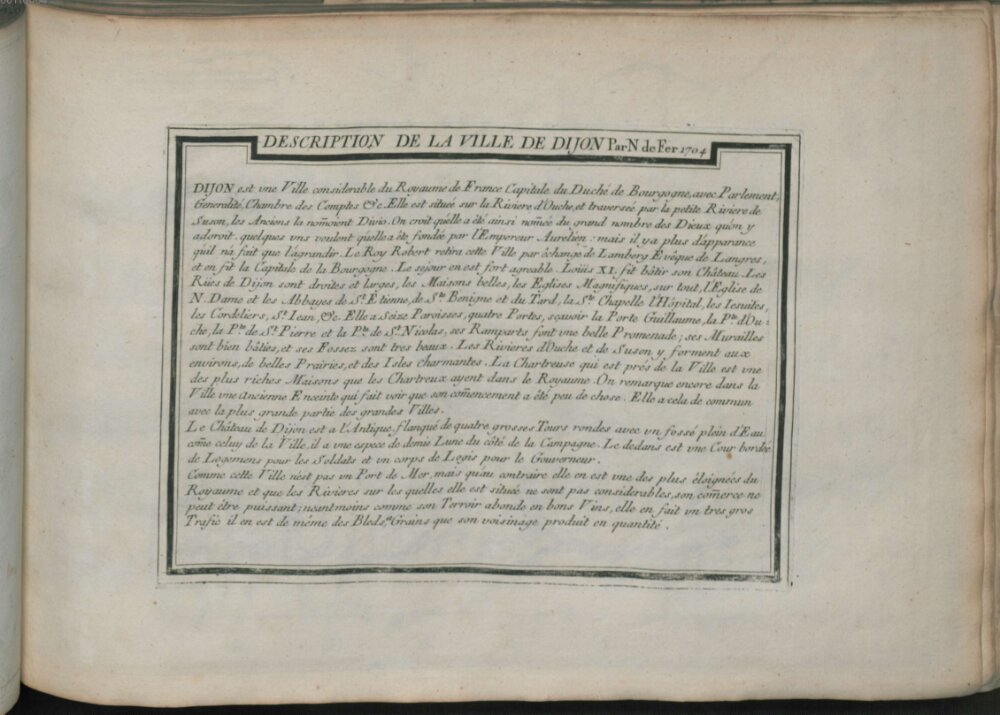 DESCRIPTION DE LA VILLE DE DIJON Par N de Fer 1704
DIJON est vne Ville considerable du Royaume de France Capitale du Duché de Bourgogne, avec Parlement,
Generalité, Chambre des Comptes &c. Elle est située sur la Riviere d'Ouche, et traversée par la petite Riviere de
Suson, les Anciens la nom̃oient Divio. On croit quélle a été ainsi nom̃ée du grand nombre des Dieux quón y
adoroit. quelques vns veulent quélle a été fondée par l'Empereur Aurélien; mais il y a plus dápparance
qu'il n'a fait que lágrandir. Le Roy Robert retira cette Ville par échange de Lamberg Evéque de Langres,
et en fit la Capitale de la Bourgogne. Le séjour en est fort agreable. Loüis XI. fit bâtir son Château. Les
Rües de Dijon sont droites et larges, les Maisons belles, les Eglises Magnifiques, sur tout, l'Eglise de
N. Dame et les Abbayes de St. Etienne, de Ste Benigne et du Tard, la Ste Chapelle l'Hôpital, les Iesuites,
les Cordeliers, St. Iean, &c. Elle a Seize Paroisses, quatre Portes, sçavoir la Porte Guillaume, la Pte. d'Ou-
che, la Pte. de St. Pierre et la Pte. de St. Nicolas, ses Ramparts font vne belle Promenade; ses Murailles
sont bien bâties, et ses Fossez sont tres beaux. Les Rivieres d'Ouche et de Suson y forment aux
environs, de belles Prairies, et des Isles charmantes. La Chartreuse qui est prés de la Ville est vne
des plus riches Maisons que les Chartreux ayent dans le Royaume. On remarque encore dans la
Ville vne Ancienne Enceinte qui fait voir que son com̃encement a été peu de chose. Elle a cela de commun
avec la plus grande partie des grandes Villes.
Le Château de Dijon est a l'Antique, flanqué de quatre grosses Tours rondes avec vn fossé plein d'Eau
com̃e celuy de la Ville, il a vne espece de demie Lune du côté de la Campagne. Le dedans est vne Cour bordée
de Logemens pour les Soldats et vn corps de Logis pour le Gouverneur.
Comme cette Ville n'est pas vn Port de Mer, mais quáu contraire elle en est vne des plus éloignées du
Royaume et que les Rivieres sur les quelles elle est située ne sont pas considerables, son com̃erce ne
peut être puissant; neantmoins comme son Terroir abonde en bons Vins, elle en fait vn tres gros
Trafic il en est de même des Bleds, et Grains que son voisinage produit en quantité.